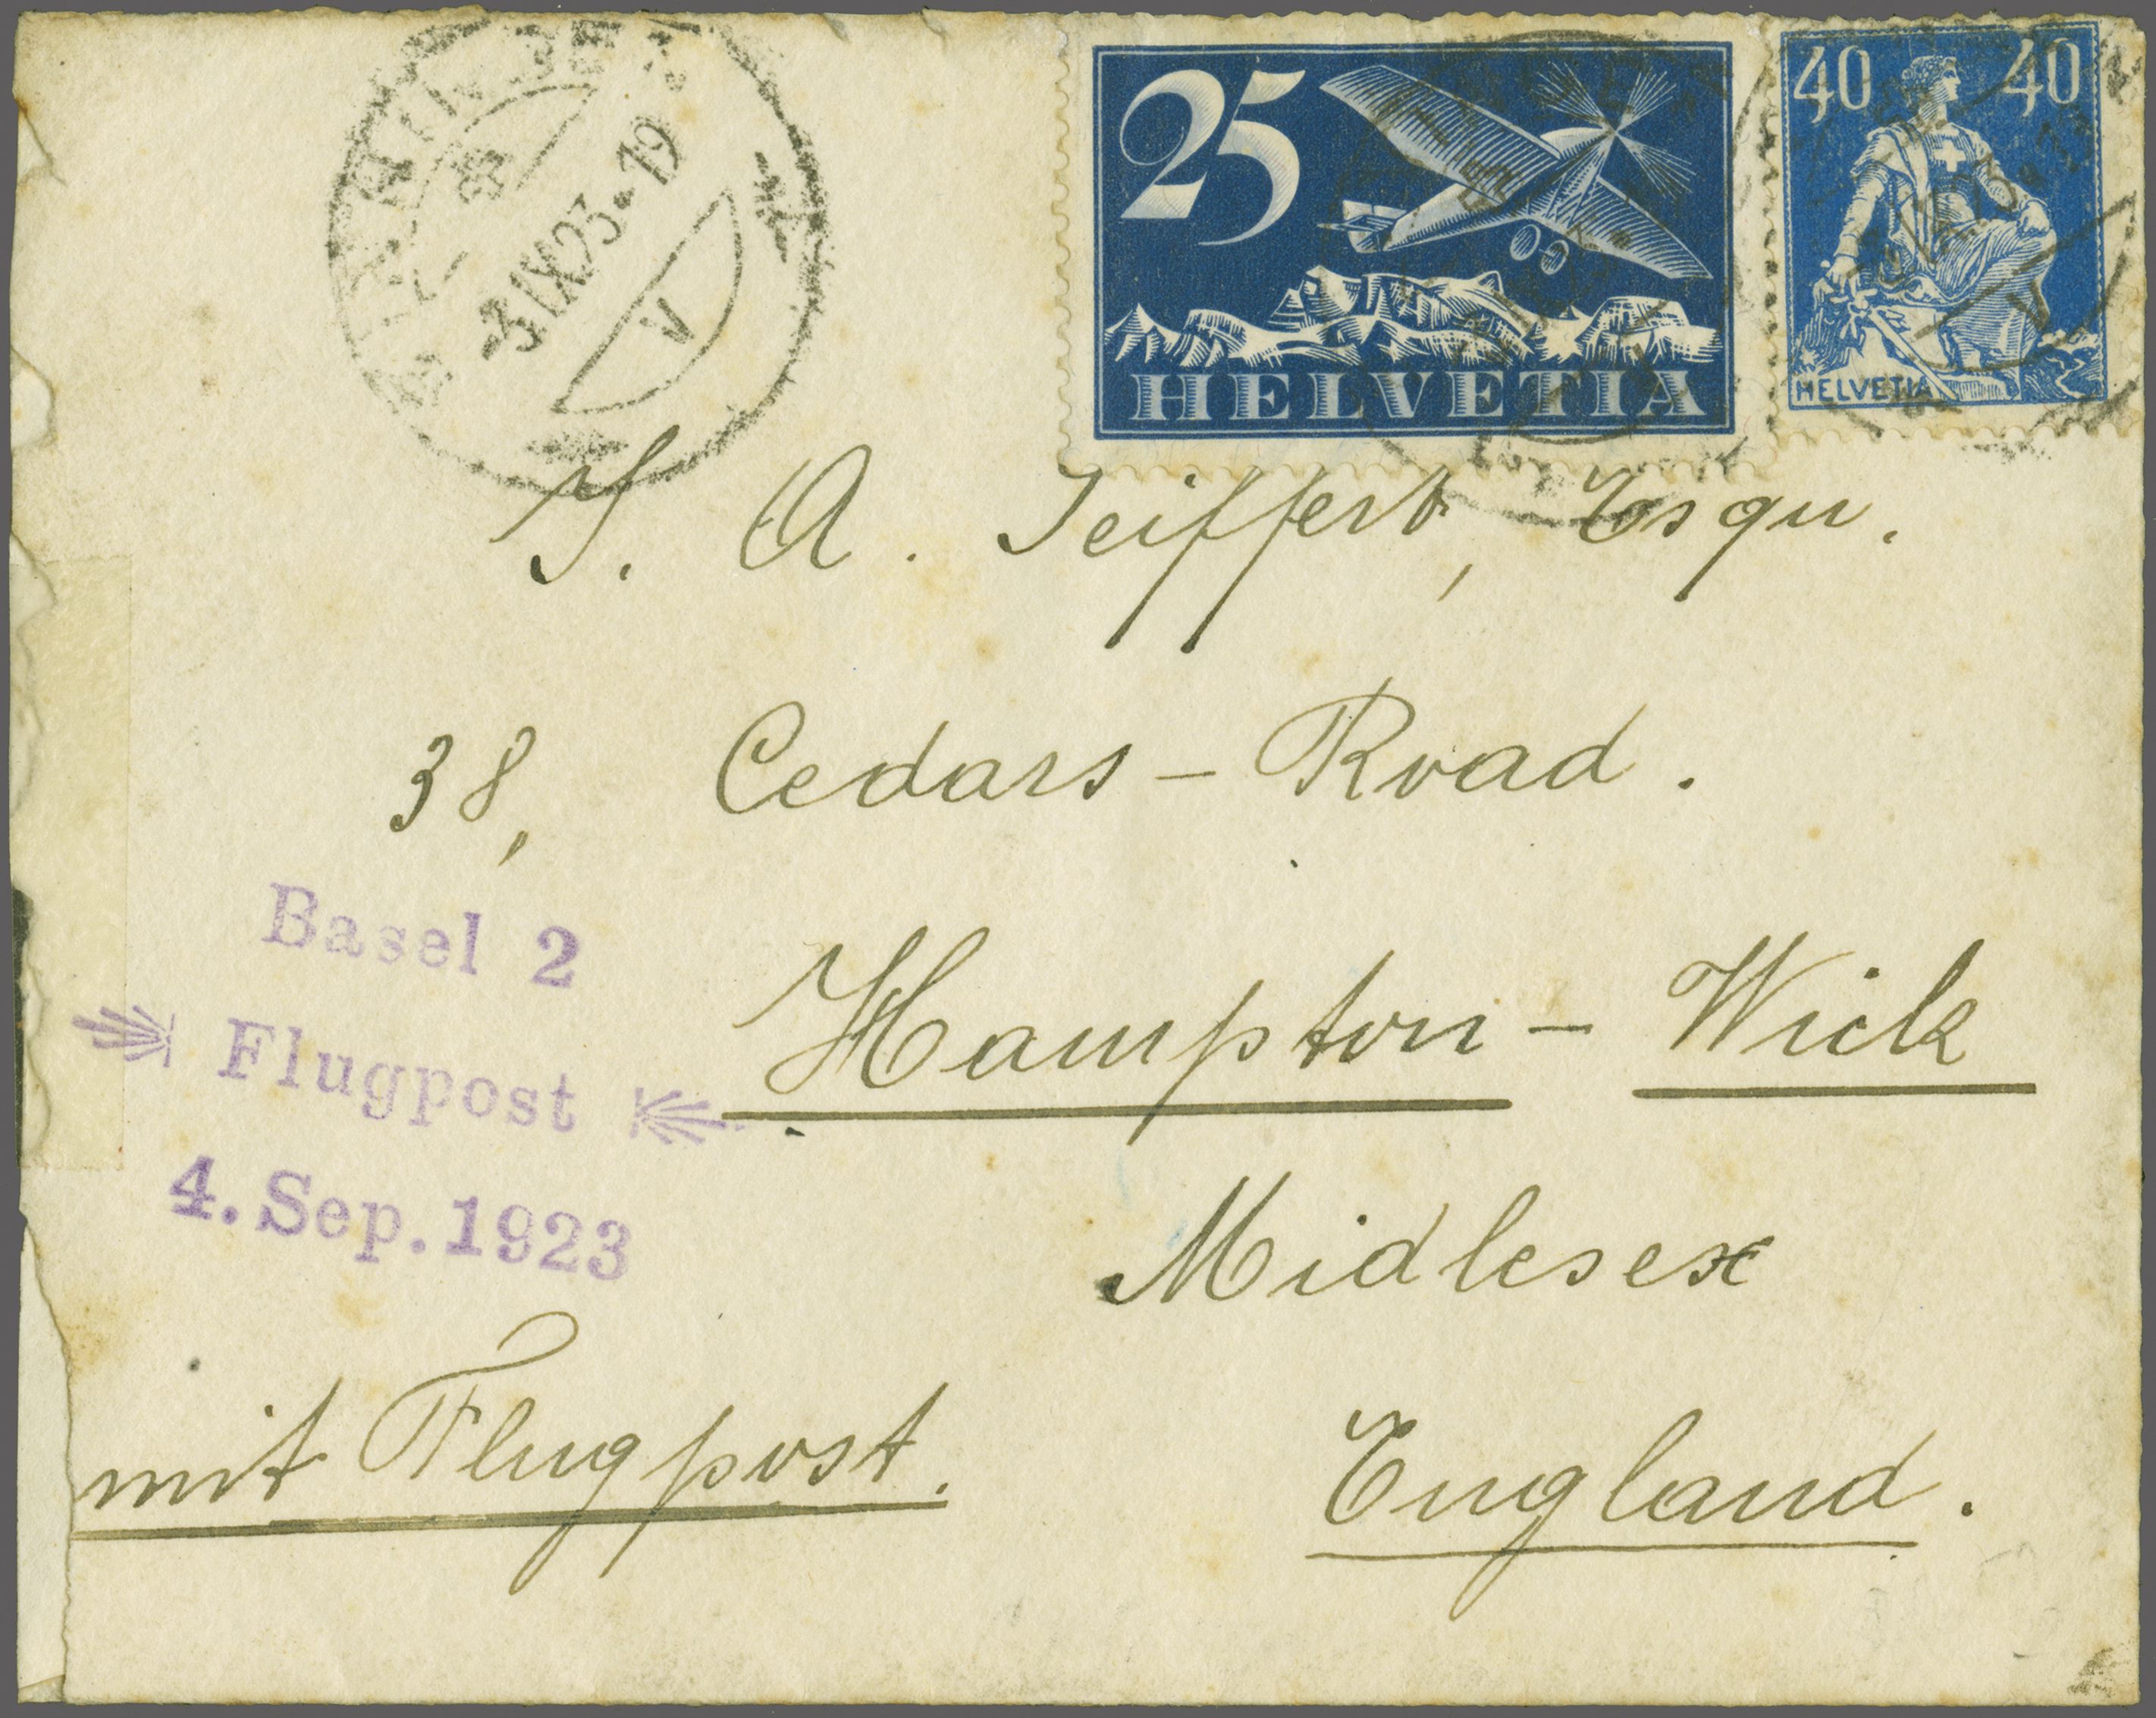 -3.IX.23.-19
V
25
HELVETIA
40 40
HELVETIA
J. A. Seiffert, Esqu.
38, Cedars-Road.
Basel 2
Flugpost
4. Sep. 1923
Hampton-Wick
Midlesex
mit Flugpost.
England.